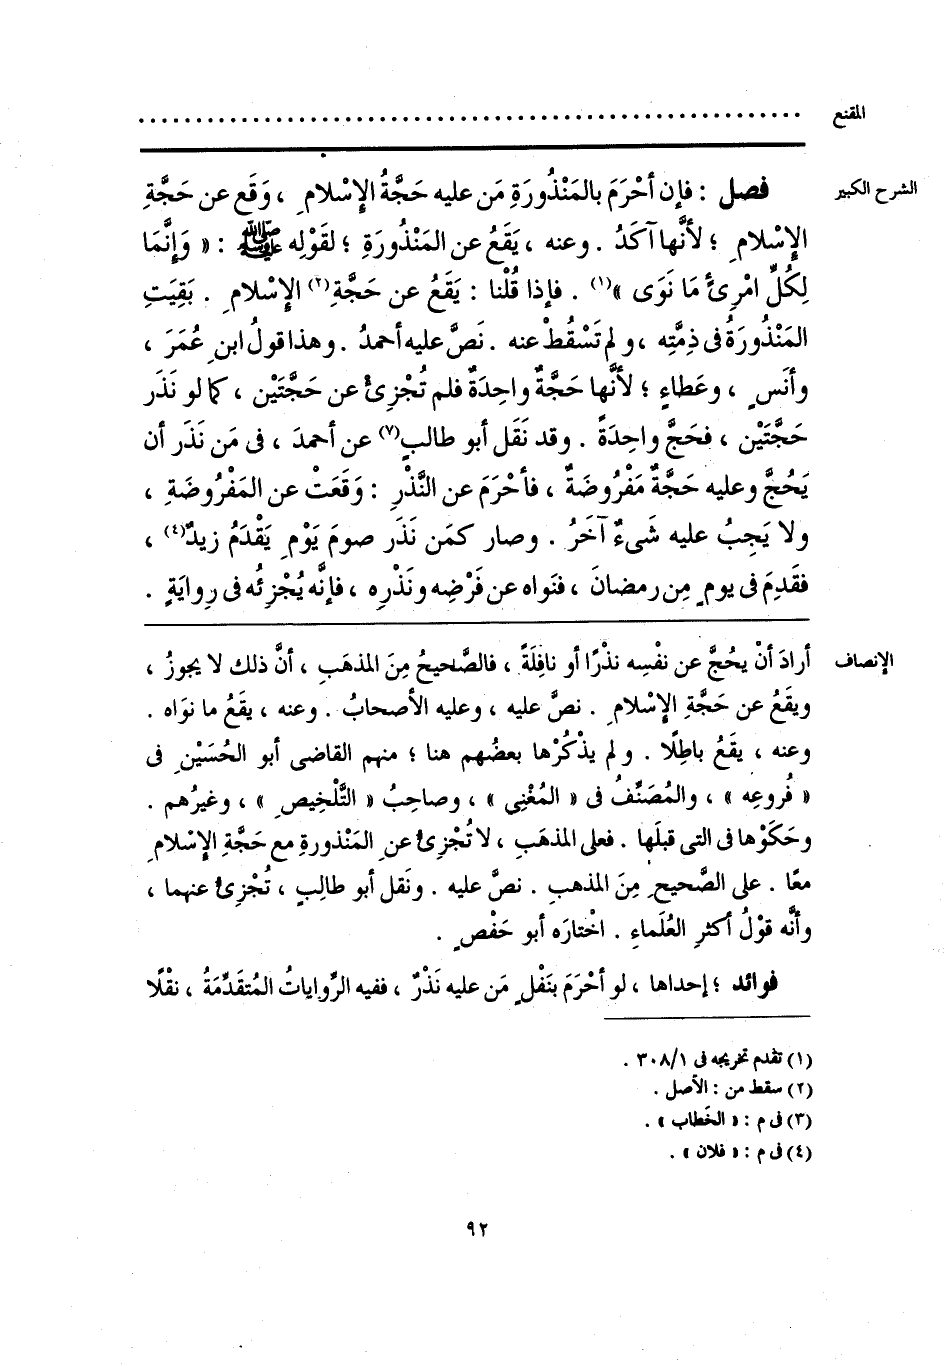 المقنع
الشرح الكبير
فصل : فإن أحْرَمَ بالمَنْذُورَةِ مَن عليه حَجَّةُ الإِسْلامِ ، وَقَع عن حَجَّةِ
الإِسْلامِ ؛ لأنَّها آكَدُ . وعنه ، يَقَعُ عن المَنْذُورَةِ ؛ لقَوْلِه ﷺ : « وَإنَّمَا
لِكُلِّ امْرِئٍ مَا نَوَى »(١) . فإذا قُلْنا : يَقَعُ عن حَجَّةِ(٢) الإِسْلامِ . بَقِيَتِ
المَنْذُورَةُ فى ذِمَّتِه ، و لم تَسْقُطْ عنه . نَصَّ عليه أحمدُ . وهذا قولُ ابنِ عُمَرَ ،
وأنَسٍ ، وعَطاءٍ ؛ لأنَّها حَجَّةٌ واحِدَةٌ فلم تُجْزِئْ عن حَجَّتَيْن ، كما لو نَذَر
حَجَّتَيْن ، فحَجَّ واحِدَةً . وقد نَقَل أبو طالبٍ(٧) عن أحمدَ ، فى مَن نَذَر أن
يَحُجَّ وعليه حَجَّةٌ مَفْرُوضَةٌ ، فأحْرَمَ عن النَّذْرِ : وَقَعَتْ عن المَفْرُوضَةِ ،
ولا يَجِبُ عليه شَىءٌ آخَرُ . وصار كمَن نَذَر صومَ يَوْمِ يَقْدَمُ زيدٌ(٤) ،
فقَدِمَ فى يومٍ مِن رمضانَ ، فنَواه عن فَرْضِه ونَذْرِه ، فإنَّه يُجْزِئُه فى رِوايَةٍ .
الإنصاف
أرادَ أنْ يحُجَّ عن نفْسِه نذْرًا أو نافِلَةً ، فالصَّحيحُ مِنَ المذهَبِ ، أنَّ ذلك لا يجوزُ ،
ويقَعُ عن حَجَّةِ الإِسْلامِ . نصَّ عليه ، وعليه الأصحابُ . وعنه ، يقَعُ ما نوَاه .
وعنه ، يقَعُ باطِلًا . و لم يذْكُرْها بعضُهم هنا ؛ منهم القاضى أبو الحُسَيْنِ فى
« فُروعِه » ، والمُصَنِّفُ فى « المُغْنِى » ، وصاحِبُ « التَّلْخيصِ » ، وغيرُهم .
وحَكَوْها فى التى قبلَها . فعلى المذهَبِ ، لا تُجْزِئُ عنِ المَنْذورةِ مع حَجَّةِ الإِسْلامِ
معًا . على الصَّحيحِ مِنَ المذهبِ . نصَّ عليه . ونَقل أبو طالِبٍ ، تُجْزِئُ عنهما ،
وأنَّه قوْلُ أكثرِ العُلَماءِ . اخْتارَه أبو حَفْصٍ .
فوائد ؛ إحداها ، لو أحْرَمَ بنَفْلٍ مَن عليه نَذْرٌ ، ففيه الرِّواياتُ المُتقَدِّمَةُ ، نقْلًا
(١) تقدم تخريجه فى ٣٠٨/١ .
(٢) سقط من : الأصل .
(٣) فى م : « الخَطاب » .
(٤) فى م : « فلان » .
٩٢